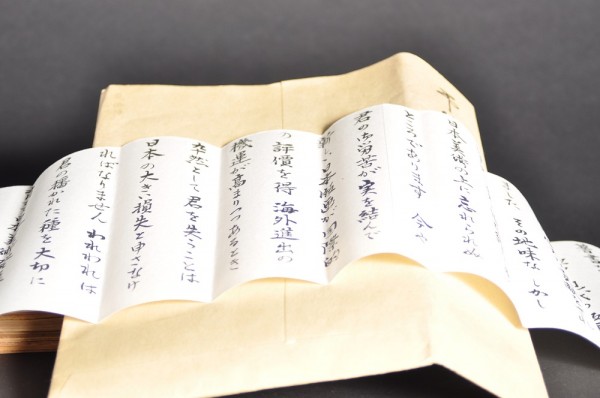 その地味な しかし
日本美術の上に忘れられぬ
ところであります 今や
君の御労苦が実を結んで
日本版画が国際的
の評價を得 海外進出の
機運が高まりつつあるとき
突然として君を失うことは
日本の大きい損失と申さなけ
ればなりません われわれは
君の播かれた種を大切に